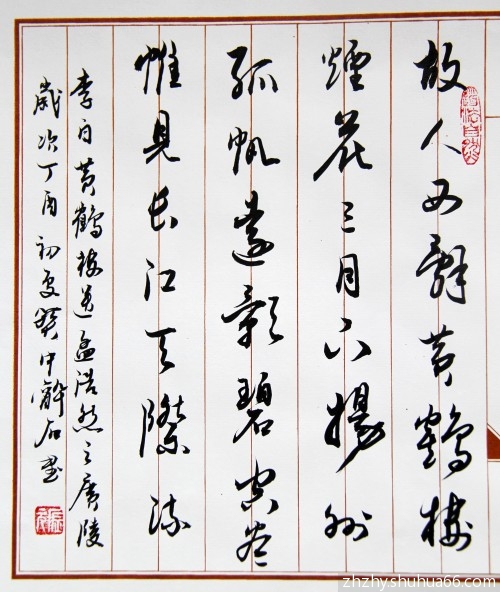 故人西辭黄鶴樓
煙花三月下揚州
孤帆遠影碧空盡
惟見長江天際流
李白黄鶴樓送孟浩然之廣陵
歲次丁酉初夏 石書
道法自然
zhzhyshuhua66.com